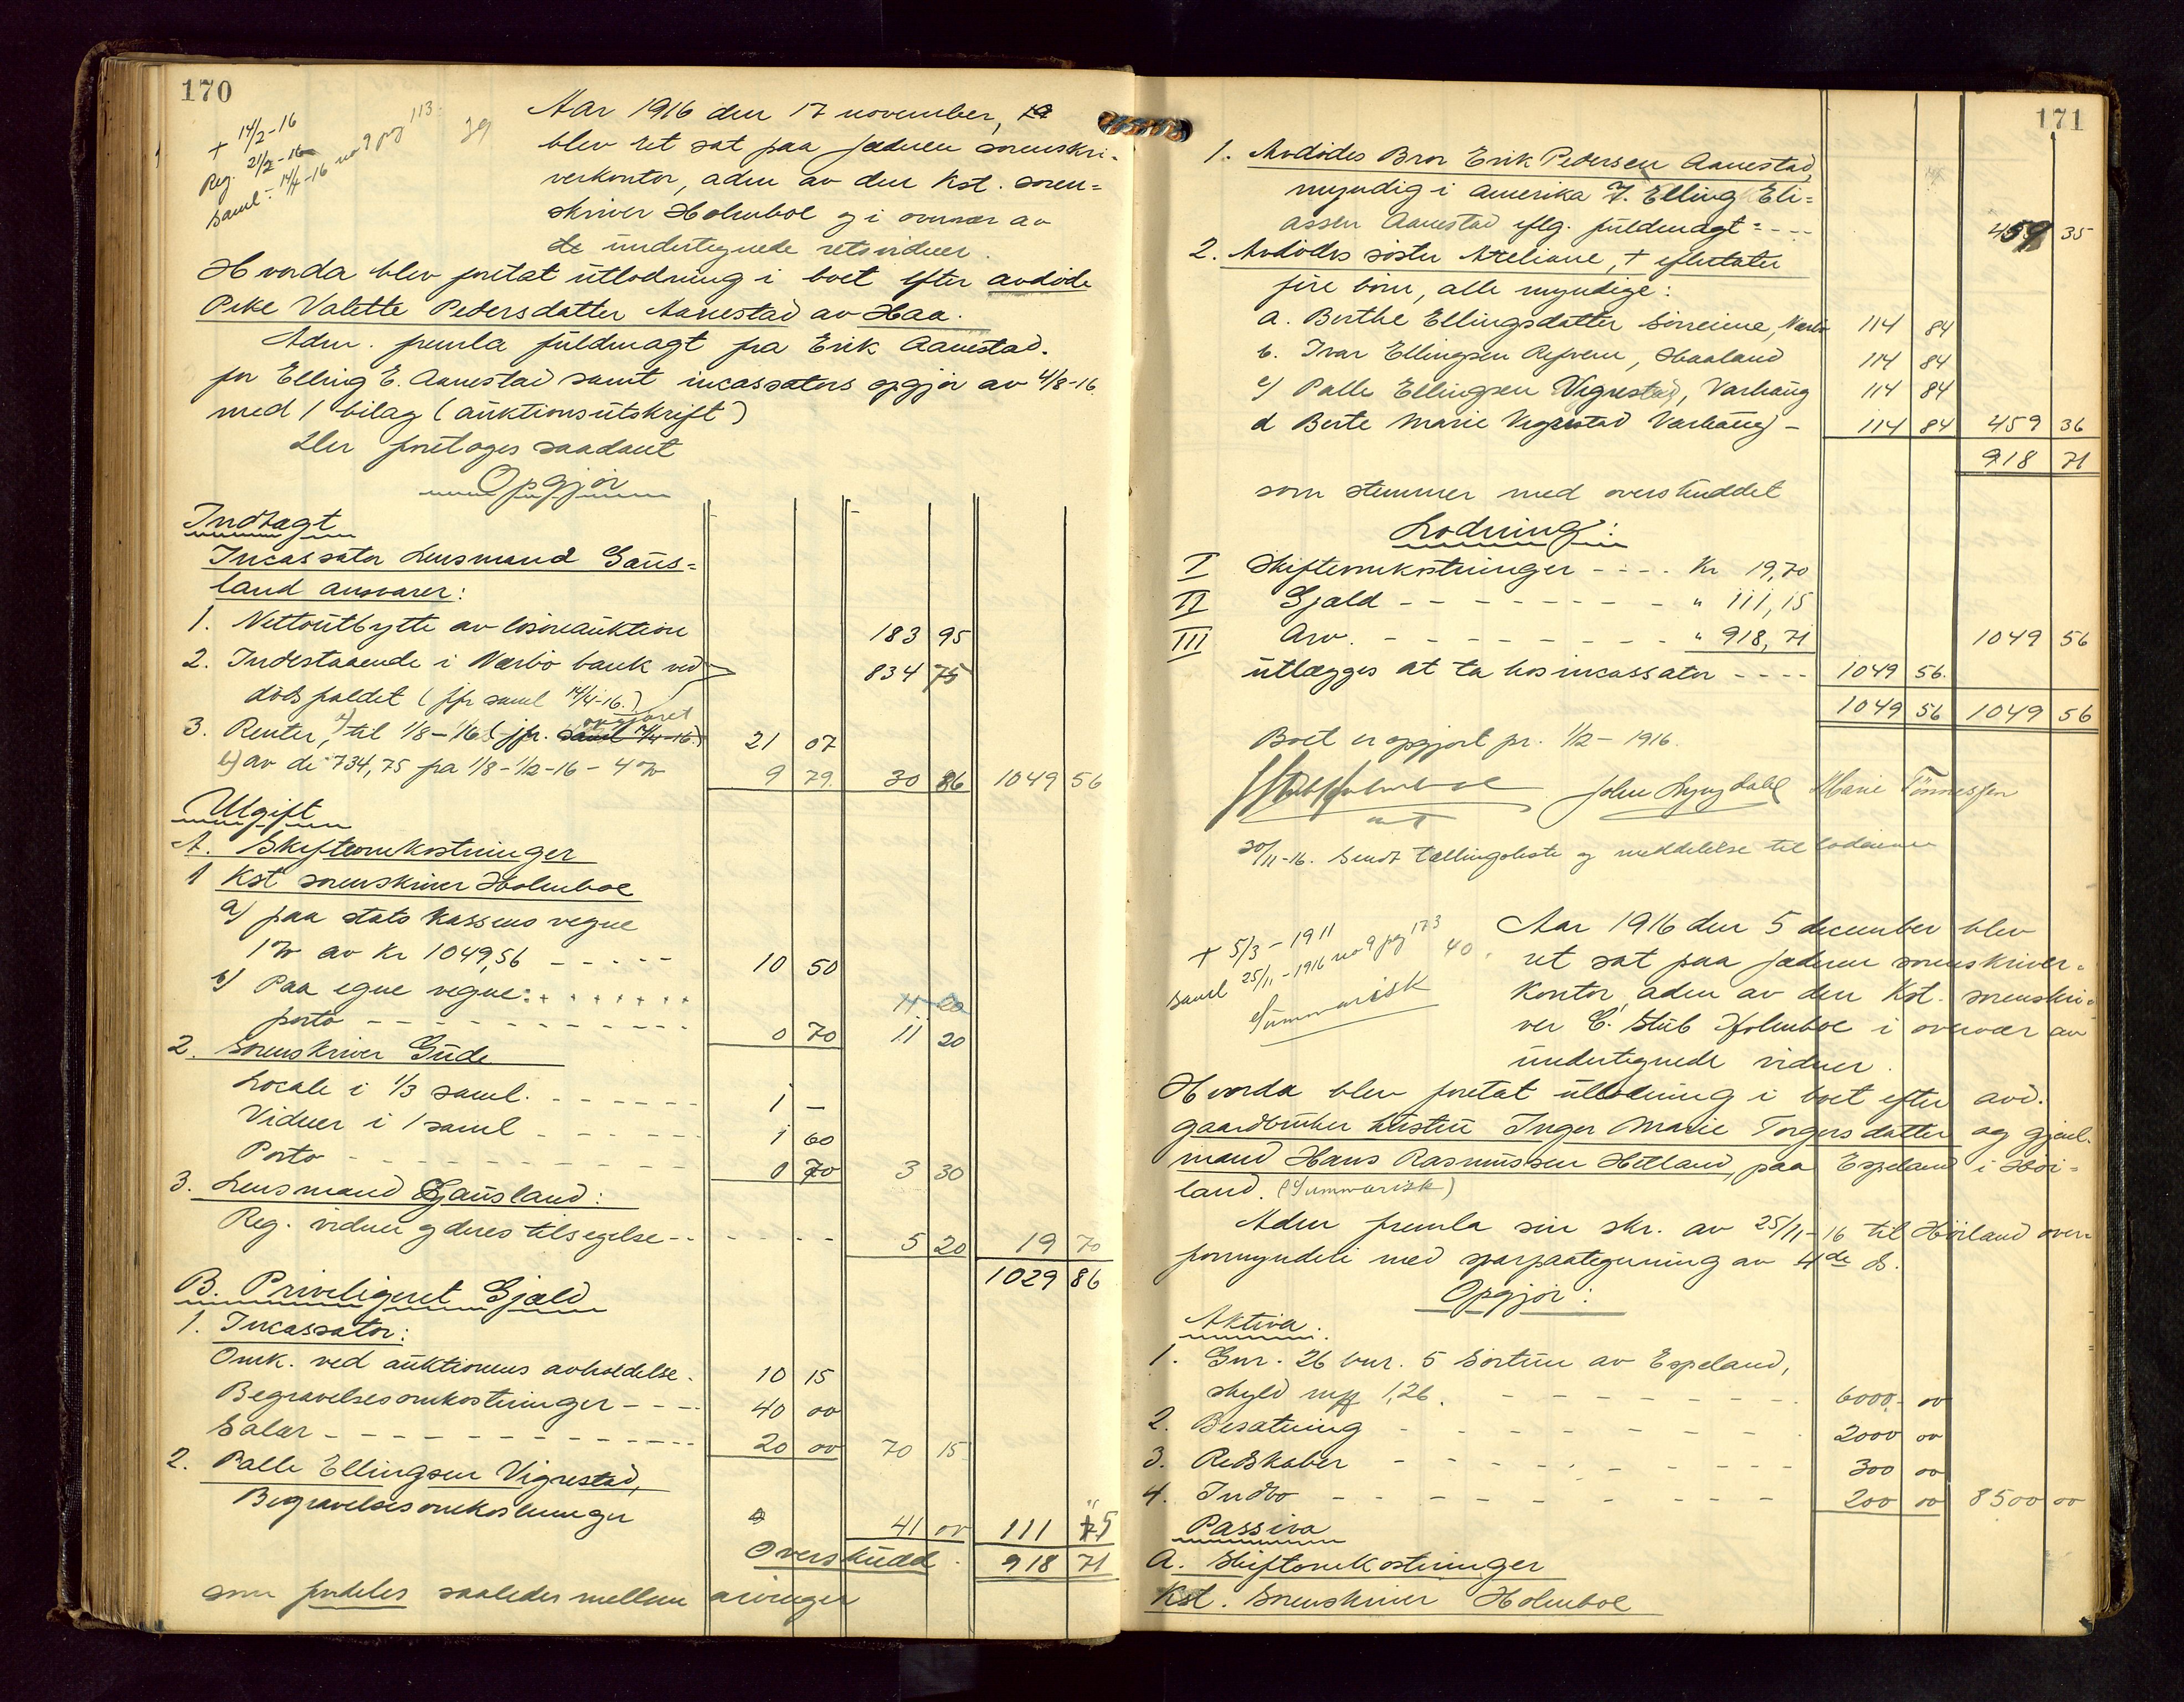 170
+ 14/2-16
Reg. 21/2-16
Saml. 14/4-16 no 9 pg 113
Aar 1916 den 17 november,
blev ret sat paa Jæderen sorenskri-
verkontor, adm av den Kst. soren-
skriver Holmboe og i overvær av
de undertegnede retsvidner.
Hvorda blev foretat utlodning i boet efter avdøde
Peke Valette Pedersdatter Aanestad av Haa.
Adm. fremla fuldmagt fra Erik Aanestad
for Elling E. Aanestad samt incassators opgjør av 4/8-16
med 1 bilag (auktionsutskrift)
Der foretoges saadant
Opgjør
Indtægt
Incassator Lensmand Gaus-
land ansvarer:
1. Nettoutbytte av løsøreauktion 183 95
2. Indestaaende i Nærbø bank ved 834 75
dødsfaldet (jfr saml 14/4-16.)
3. Renter, a) til 1/8-16 (jfr. opgjøret saml 14/4-16) 21 07
b) av de 734,75 fra 1/8-1/12-16 - 4% 9 79 30 86 1049 56
Utgift
A. Skifteomkostninger
1 Kst sorenskriver Holmboe
a) paa statskassens vegne
1% av Kr 1049,56 - - - - - 10 50
b) Paa egne vegne:
porto - - - - - - - - 0 70 11 20
2. Sorenskriver Gude
Locale i 1/3 saml. - - - - - - 1 -
Vidner i 1 saml - - - - - - 1 60
Porto - - - - - - - - 0 70 3 30
3. Lensmand Gausland:
Reg. vidner og deres tilsigelse - - - - - - 5 20 19 70
1029 86
B. Priveligeret Gjæld
1. Incassator:
Omk. ved auktionens avholdelse. 10 15
Begravelsesomkostninger - - - - 40 00
Salær - - - - - - - - 20 00 70 15
2. Palle Ellingsen Vigrestad,
Begravelsesomkostninger 41 00 111 15
Overskudd 918 71
som fordeles saaledes mellem arvinger
171
1. Avdødes Bror Erik Pedersen Aanestad,
myndig i Amerika f. Elling Eli-
assen Aanestad iflg. fuldmagt = - - - 459 35
2. Avdødes søster Areliane, + efterlater
fire børn, alle myndige:
a. Berthe Ellingsdatter Sørreime, Nærbø 114 84
b. Ivar Ellingsen Refvem, Haaland 114 84
c) Palle Ellingsen Vigrestad, Varhaug 114 84
d Berte Marie Vigrestad Varhaug - 114 84 459 36
918 71
som stemmer med overskuddet
Lodning:
I Skifteomkostninger - - - - Kr 19,70
II Gjæld - - - - - - - - " 111,15
III Arv. - - - - - - - - " 918,71 1049 56
utlægges at ta hos incassator - - - - 1049 56.
1049 56 1049 56
Boet er opgjort pr. 1/12-1916.
Stub Holmboe John Lyngdahl Marie Tønnessen
30/11-16. Sendt tællingsliste og meddelelse til lodeierne
+ 5/3-1911
saml 25/11-1916 no 9 pg 173 40.
Summarisk
Aar 1916 den 5 december blev
ret sat paa Jæderen sorenskriver-
kontor, adm av den Kst. sorenskri-
ver C. Stub Holmboe i overvær av
undertegnede vidner.
Hvorda blev foretat utlodning i boet efter avd.
gaardbruker hustru Inger Marie Torgersdatter og gjenl.
mand Hans Rasmussen Hetland, paa Espeland i Høi-
land. (Summarisk)
Adm fremla sin skr. av 25/11-16 til Høiland over-
formynderi med svarpaategning av 4de ds.
Opgjør:
Aktiva.
1. Gnr. 26 bnr. 5 Sørtun av Espeland,
skyld mrk 1,26. - - - - - - - 6000. 00
2. Besætning - - - - - - - 2000 00
3. Redskaber - - - - - - - 300 00
4. Indbo - - - - - - - 200 00 8500 00
Passiva
A. Skifteomkostninger
Kst. Sorenskriver Holmboe